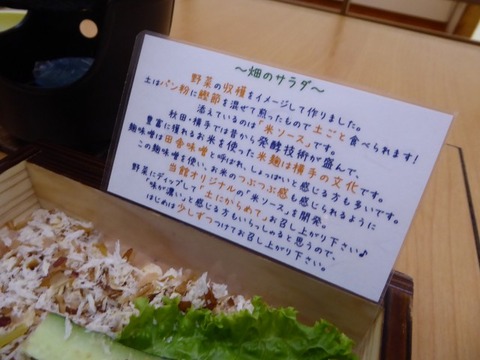 ～畑のサラダ～
野菜の収穫をイメージして作りました。
土はパン粉に鰹節を混ぜて煎ったもので土ごと食べられます!
添えているのは「米ソース」です。
秋田・横手では昔から発酵技術が盛んで、
豊富に獲れるお米を使った米麹は横手の文化です。
麹味噌は田舎味噌と呼ばれ、しょっぱいと感じる方も多いです。
この麹味噌を使い、お米のつぶつぶ感も感じられるように
当館オリジナルの「米ソース」を開発。
野菜にディップして「土にからめて」お召し上がり下さい♪
「味が濃い」と感じる方もいらっしゃると思うので、
はじめは少しずつつけてお召し上がり下さい。